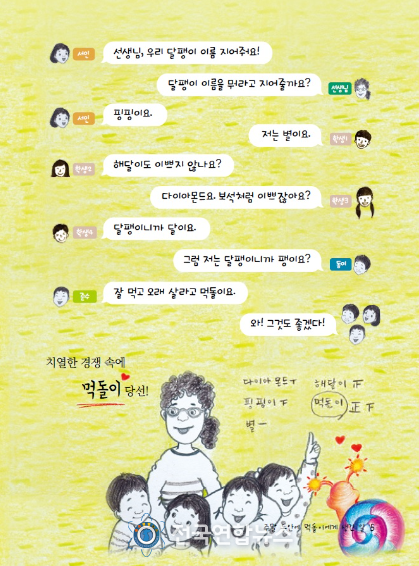 서인
선생님, 우리 달팽이 이름 지어줘요!
달팽이 이름을 뭐라고 지어줄까요?
선생님
서인
핑핑이요.
저는 별이요.
학생1
학생2
해달이도 이쁘지 않나요?
다이아몬드요. 보석처럼 이쁘잖아요?
학생3
학생4
달팽이니까 달이요.
그럼 저는 달팽이니까 팽이요?
동이
잘 먹고 오래 살라고 먹돌이요.
와! 그것도 좋겠다!
치열한 경쟁 속에
먹돌이 당선!
다이아 몬드
해달이 正
핑핑이
먹돌이 正
별 一
전국연합뉴스